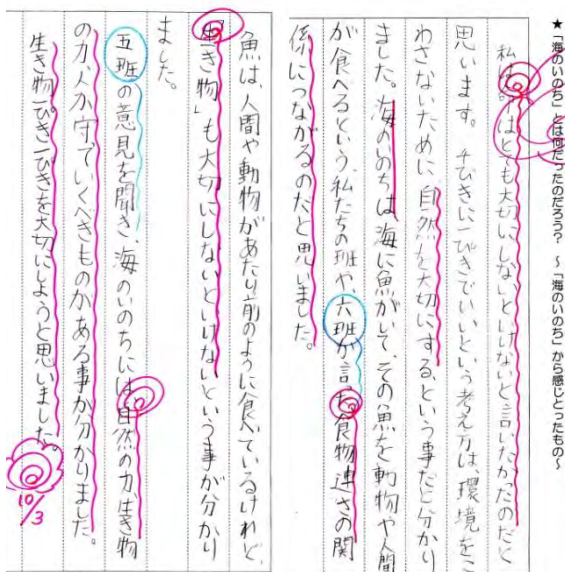 ★「海のいのち」とは何だったのだろう? ~「海のいのち」から感じとったもの~
私は、 はとても大切にしないといけないと、言いたかったのだと
思います。千びきに一ぴきでいいという考え方は、環境をこ
わさないために、自然を大切にする、という事だと分かり
ました。海のいのちは、海に魚がいて、その魚を動物や人間
が食べるという、私たちの班や、六班が言った食物連さの関
係につながるのだと思いました。
魚は、人間や動物があたり前のように食べているけれど、
「生き物」も大切にしないといけないという事が分かり
ました。
五班の意見を聞き、海のいのちには、自然の力、生き物
の力、人が守ていくべきものがある事が分かりました。
生き物一ぴき一ぴきを大切にしようと思いました。
10/3